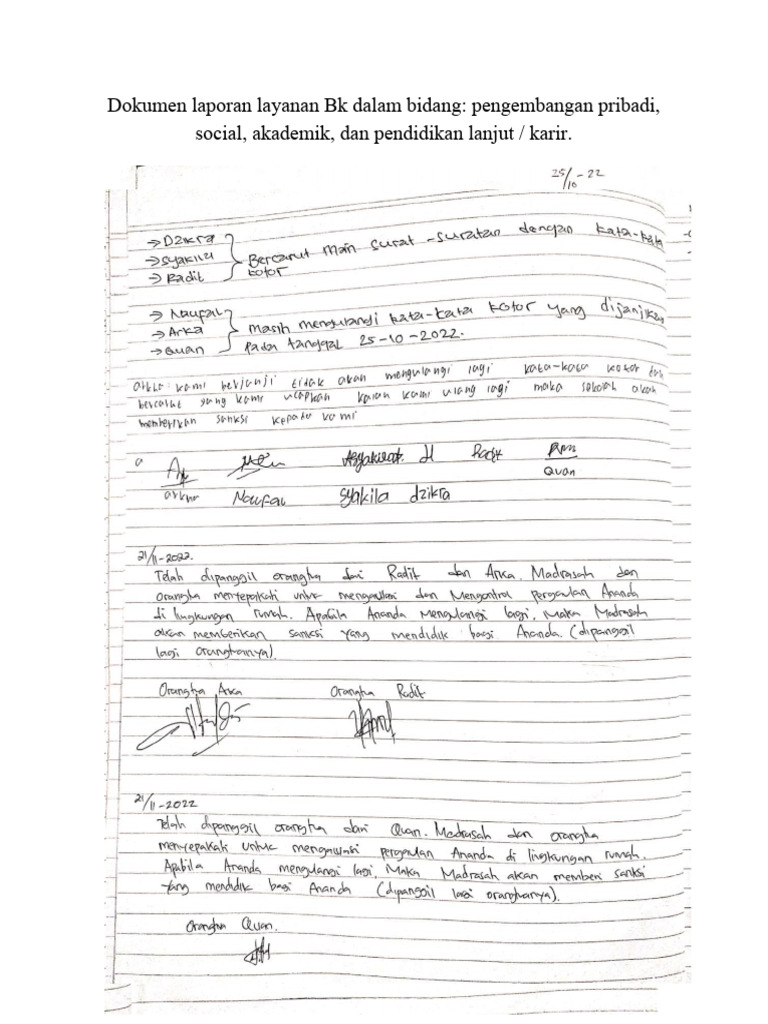 Dokumen laporan layanan Bk dalam bidang: pengembangan pribadi,
social, akademik, dan pendidikan lanjut / karir.
25/10-22
→ Dzikra
→ Syakila
→ Radit
Bercarut main surat-suratan dengan kata-kata
kotor
→ Naufal
→ Arka
→ Quan
Masih mengurangi kata-kata kotor yang dijanjikan
pada tanggal 25-10-2022.
kami berjanji tidak akan mengulangi lagi kata-kata kotor dan
bercarut yang kami ucapkan kami ulang lagi maka sekolah akan
memberikan sanksi kepada kami
Radit
Quan
Naufal syakila dzikra
21/11-2022.
Telah dipanggil orangtua dari Radit dan Arka. Madrasah dan
orangtua menyepakati untuk mengawasi dan Mengontrol pergaulan Ananda
di lingkungan rumah. Apabila Ananda Mengulangi lagi, Maka Madrasah
akan memberikan sanksi yang mendidik bagi Ananda. (dipanggil
lagi orangtuanya).
Orangtua Arka Orangtua Radit
21/11-2022
Telah dipanggil orangtua dari Quan. Madrasah dan orangtua
menyepakati untuk mengawasi pergaulan Ananda di lingkungan rumah.
Apabila Ananda mengulangi lagi, Maka Madrasah akan memberi sanksi
yang mendidik bagi Ananda (dipanggil lagi orangtuanya).
Orangtua Quan.